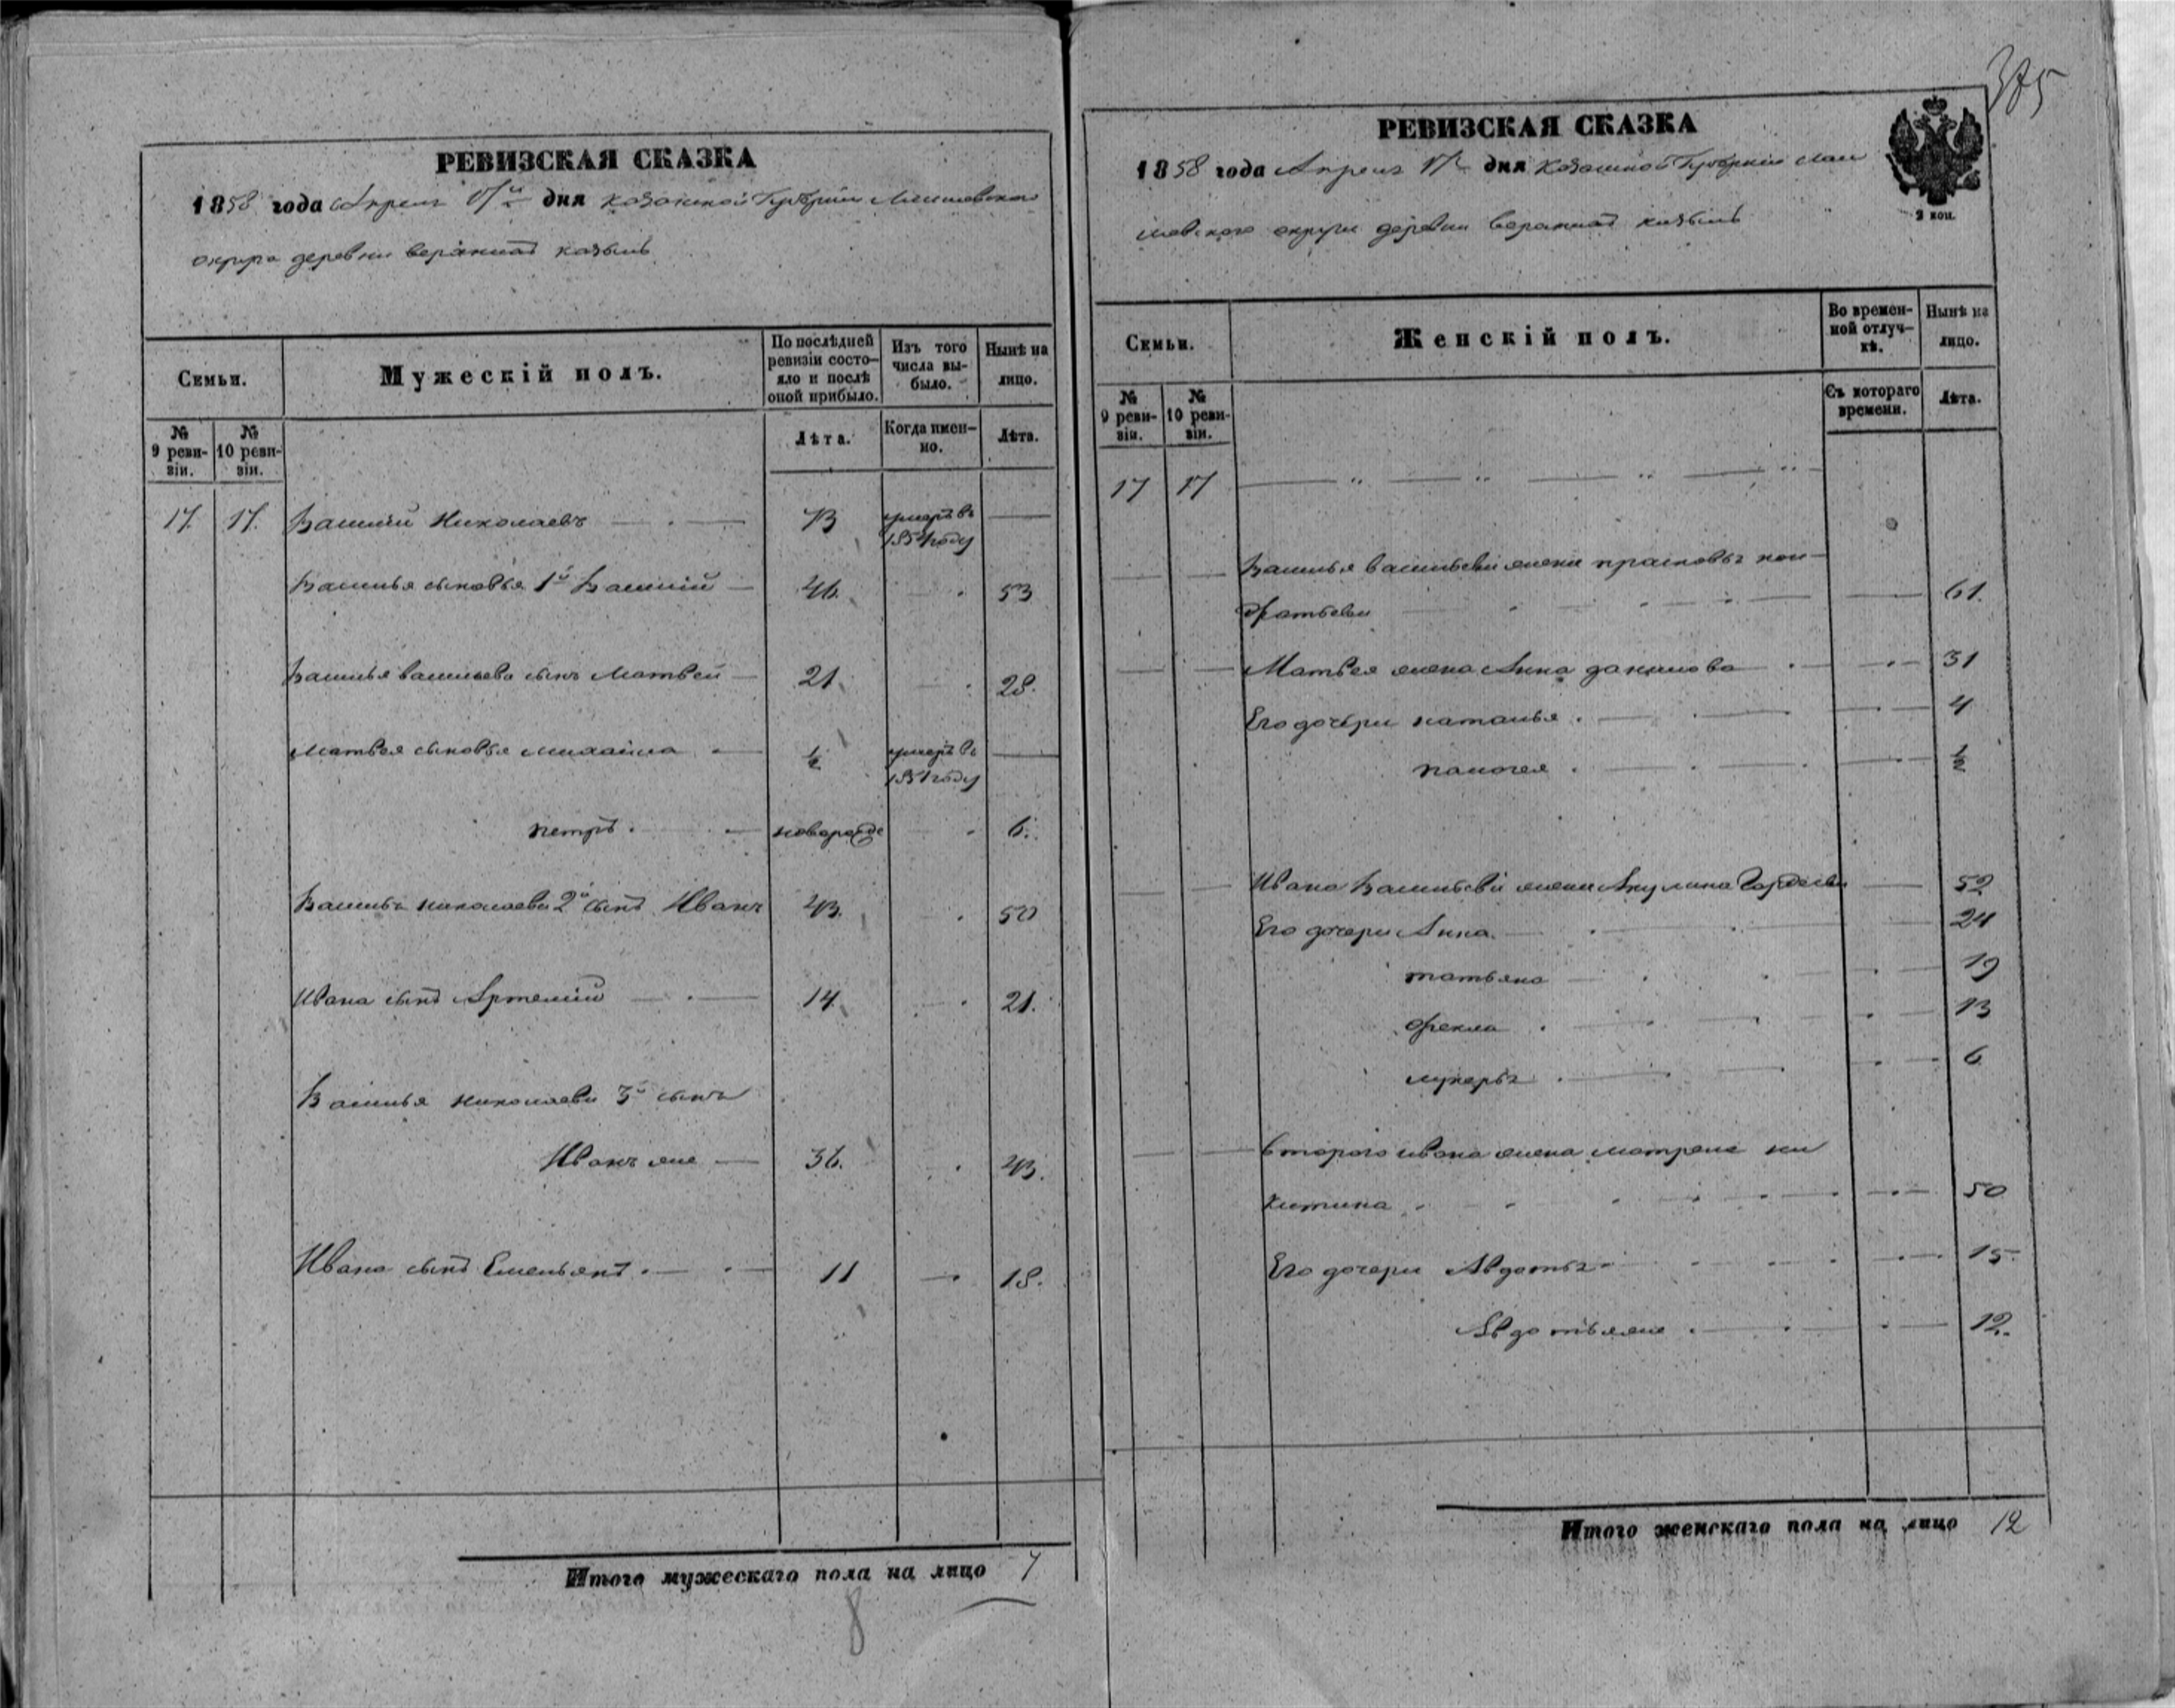 375
РЕВИЗСКАЯ СКАЗКА
1858 года Апреля 17 дня Казанской Губернии Лаишевского
округа деревни верхнат казыль
Семьи.
Мужескій полъ.
По послѣдней ревизіи состо-яло и послѣ оной прибыло.
Изъ того числа вы-было.
Нынѣ на лицо.
№ 9 реви-зіи.
№ 10 реви-зіи.
Лѣта.
Когда имен-но.
Лѣта.
17. 17. Василий Николаевъ 73 умеръ въ
1854 году
Василья сыновья 1й Василий 46. 53
Василья васильева сынъ Матвей 21. 28.
Матвея сыновья михаила ½ умеръ въ
1851 году
петръ новорожде 6.
Василья николаева 2й сынъ Иванъ 43. 50
Ивана сынъ Артемий 14. 21.
Василья николаева 3й сынъ
Иванъ же 36. 43.
Ивана сынъ Емельянъ 11 18.
Итого мужескаго пола на лицо 7
8
РЕВИЗСКАЯ СКАЗКА
1858 года Апреля 17 дня Казанской Губернии Лаи
шевского округа деревни верхнат казыль
2 коп.
Семьи.
Женскій полъ.
Во времен-ной отлуч-кѣ.
Нынѣ на лицо.
№ 9 реви-зіи.
№ 10 реви-зіи.
Съ котораго времени.
Лѣта.
17 17
Василья васильева жена прасковья кон
дратьева 61.
Матвея жена Анна данилова 31
Его дочери наталья 4
пелагея ½
Ивана Васильева жена Акулина Гордеева 52
Его дочери Анна 24
татьяна 19
фекла 13
лукерья 6
второго ивана жена матрена ни
китина 50
Его дочери Авдотья 15
Авдотья же 12.
Итого женскаго пола на лицо 12